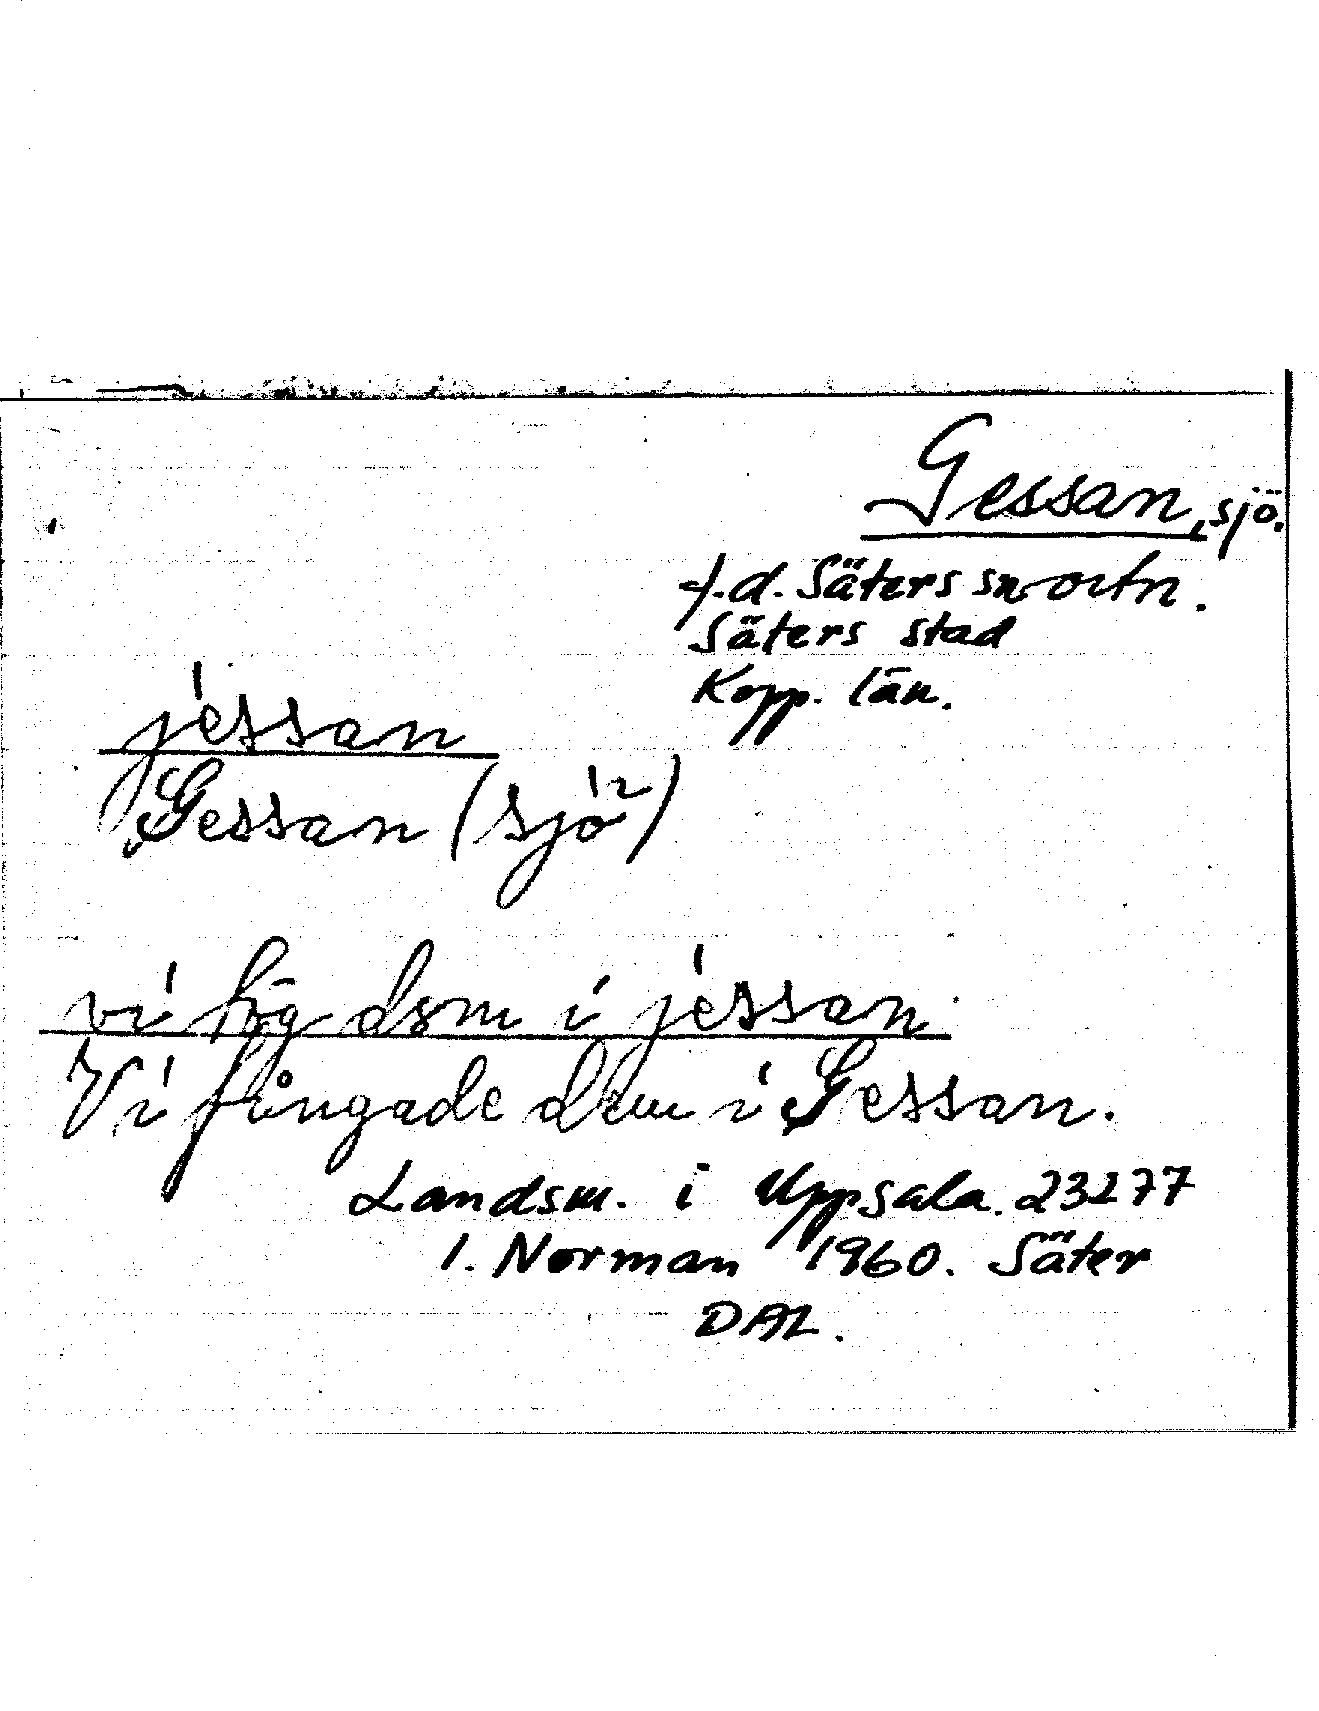 Gessan, sjö.
f.d. Säters sn o utn.
Säters stad
Kopp. län.
jessan
Gessan (sjö)
vi i jessan.
Vi fångade dem i Gessan.
Landsm. i Uppsala. 23277
I. Norman 1960. Säter
DAL.